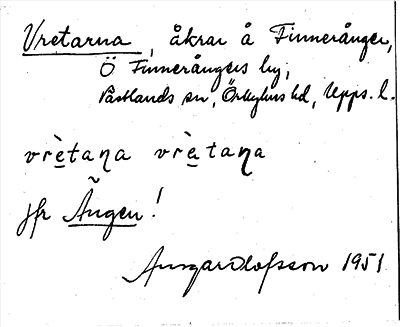 Vretarna, åkrar å Finnerånger,
Ö Finnerångers by,
Västlands sn, Örbyhus hd, Upps. l.
vrètaṇa vrètaṇa
jfr Ängen!
Ansgar Olofsson 1951